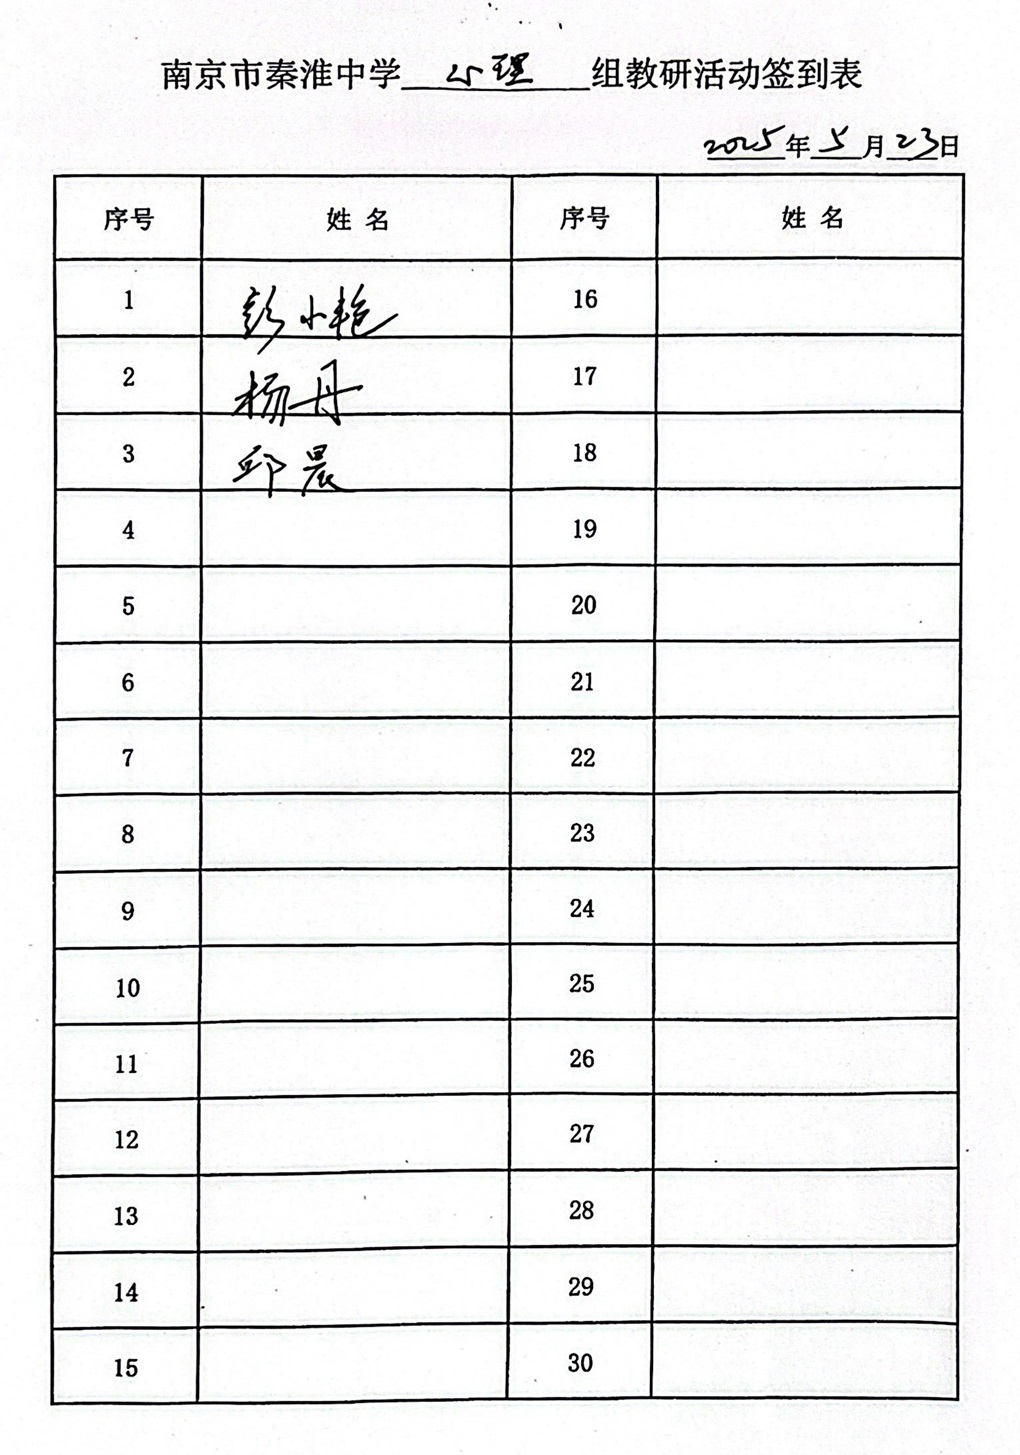 南京市秦淮中学 心理 组教研活动签到表
2025年5月23日
序号 姓名 序号 姓名
1 彭小艳 16
2 杨丹 17
3 邱晨 18
4 19
5 20
6 21
7 22
8 23
9 24
10 25
11 26
12 27
13 28
14 29
15 30